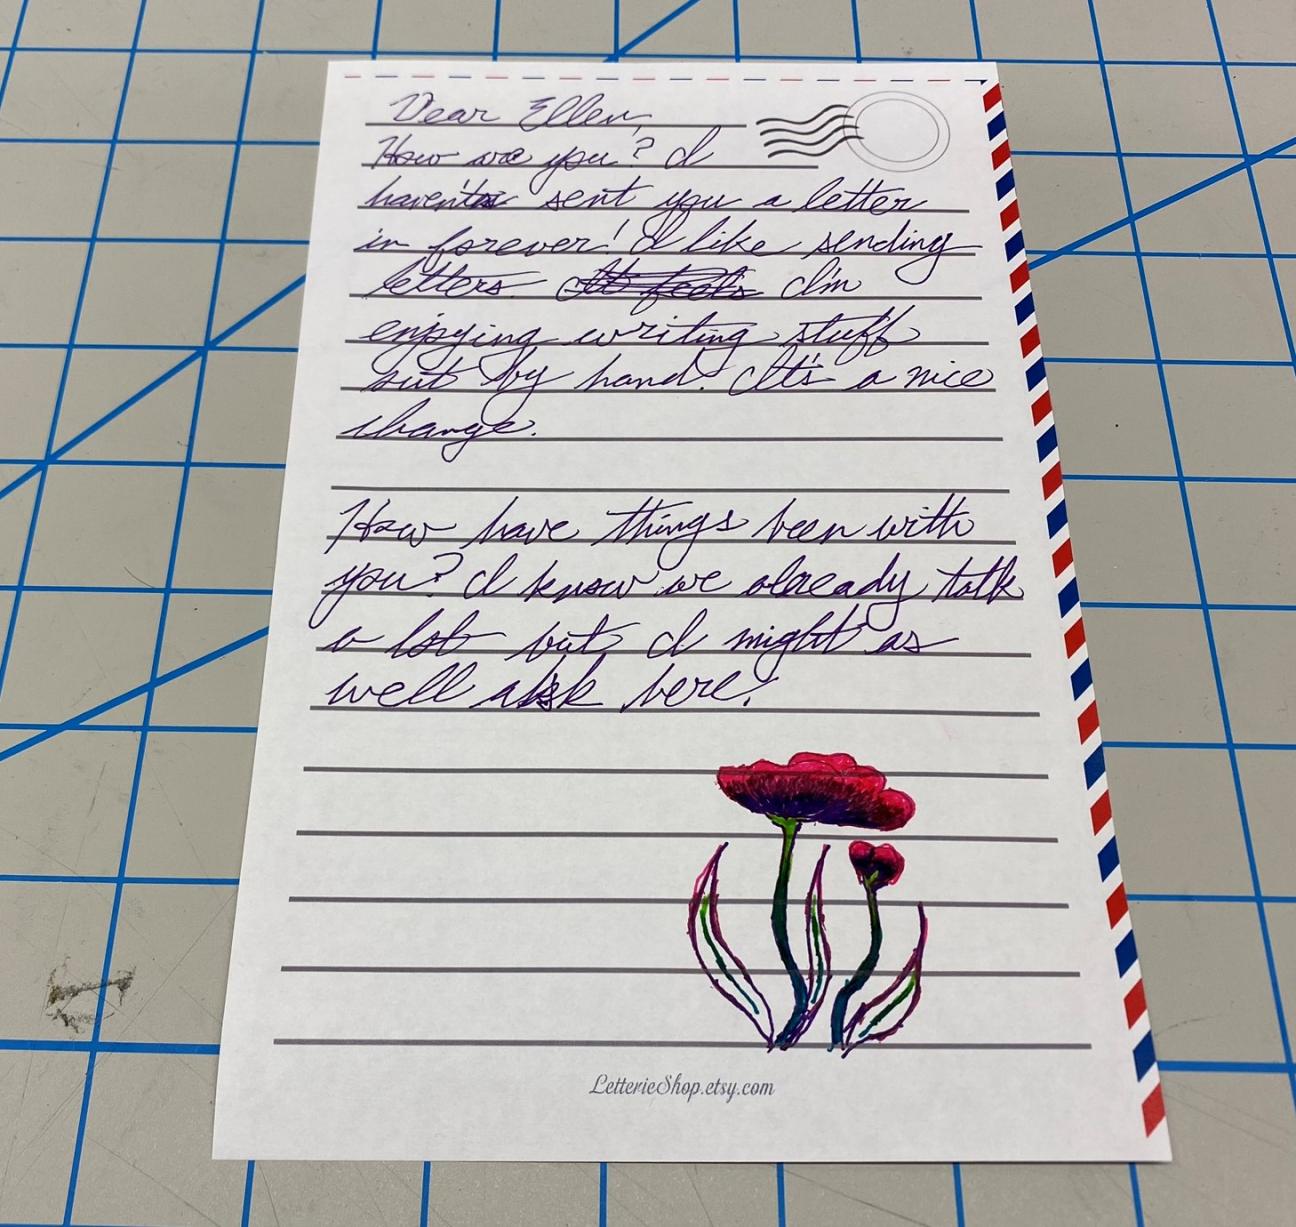 Dear Ellen,
How are you? I
haven't sent you a letter
in forever! I like sending
letters. It feels I'm
enjoying writing stuff
out by hand. It's a nice
change.
How have things been with
you? I know we already talk
a lot but I might as
well ask here!
LetterieShop.etsy.com